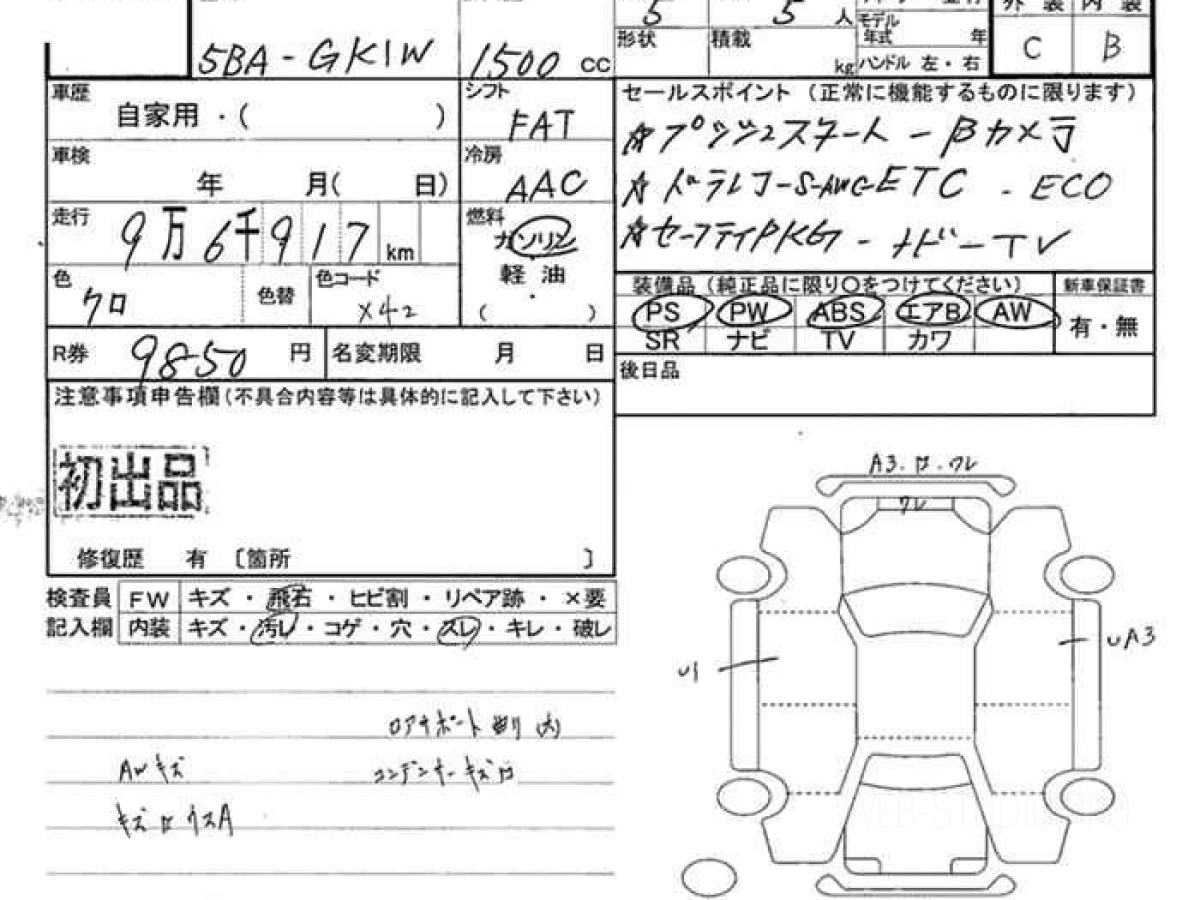 5
5 人
モデル
年式 年
外装 内装
C B
5BA-GK1W
1500 cc
形状
積載 kg
ハンドル 左・右
車歴
自家用・( )
シフト
FAT
車検
年 月( 日)
冷房
AAC
走行
9万6千917 km
燃料
ガソリン
軽油
・
( )
色
クロ
色替
色コード
X42
R券 9850 円
名変期限 月 日
セールスポイント (正常に機能するものに限ります)
☆プッシュスタート - Bカメラ
☆ドラレコ-S-AWC-ETC - ECO
☆セーフティPKG - ナビ-TV
装備品 (純正品に限り○をつけてください)
PS PW ABS エアB AW
SR ナビ TV カワ
新車保証書
有・無
後日品
注意事項申告欄(不具合内容等は具体的に記入して下さい)
初出品
修復歴 有 〔箇所 〕
検査員 FW キズ・飛石・ヒビ割・リペア跡・×要
記入欄 内装 キズ・汚レ・コゲ・穴・スレ・キレ・破レ
ロアサポート曲り 凹
AWキズ
コンデンサーキズ凹
キズ凹ウスA
A3.凹.ワレ
ワレ
U1
UA3
WEB-STUDIO.PRO